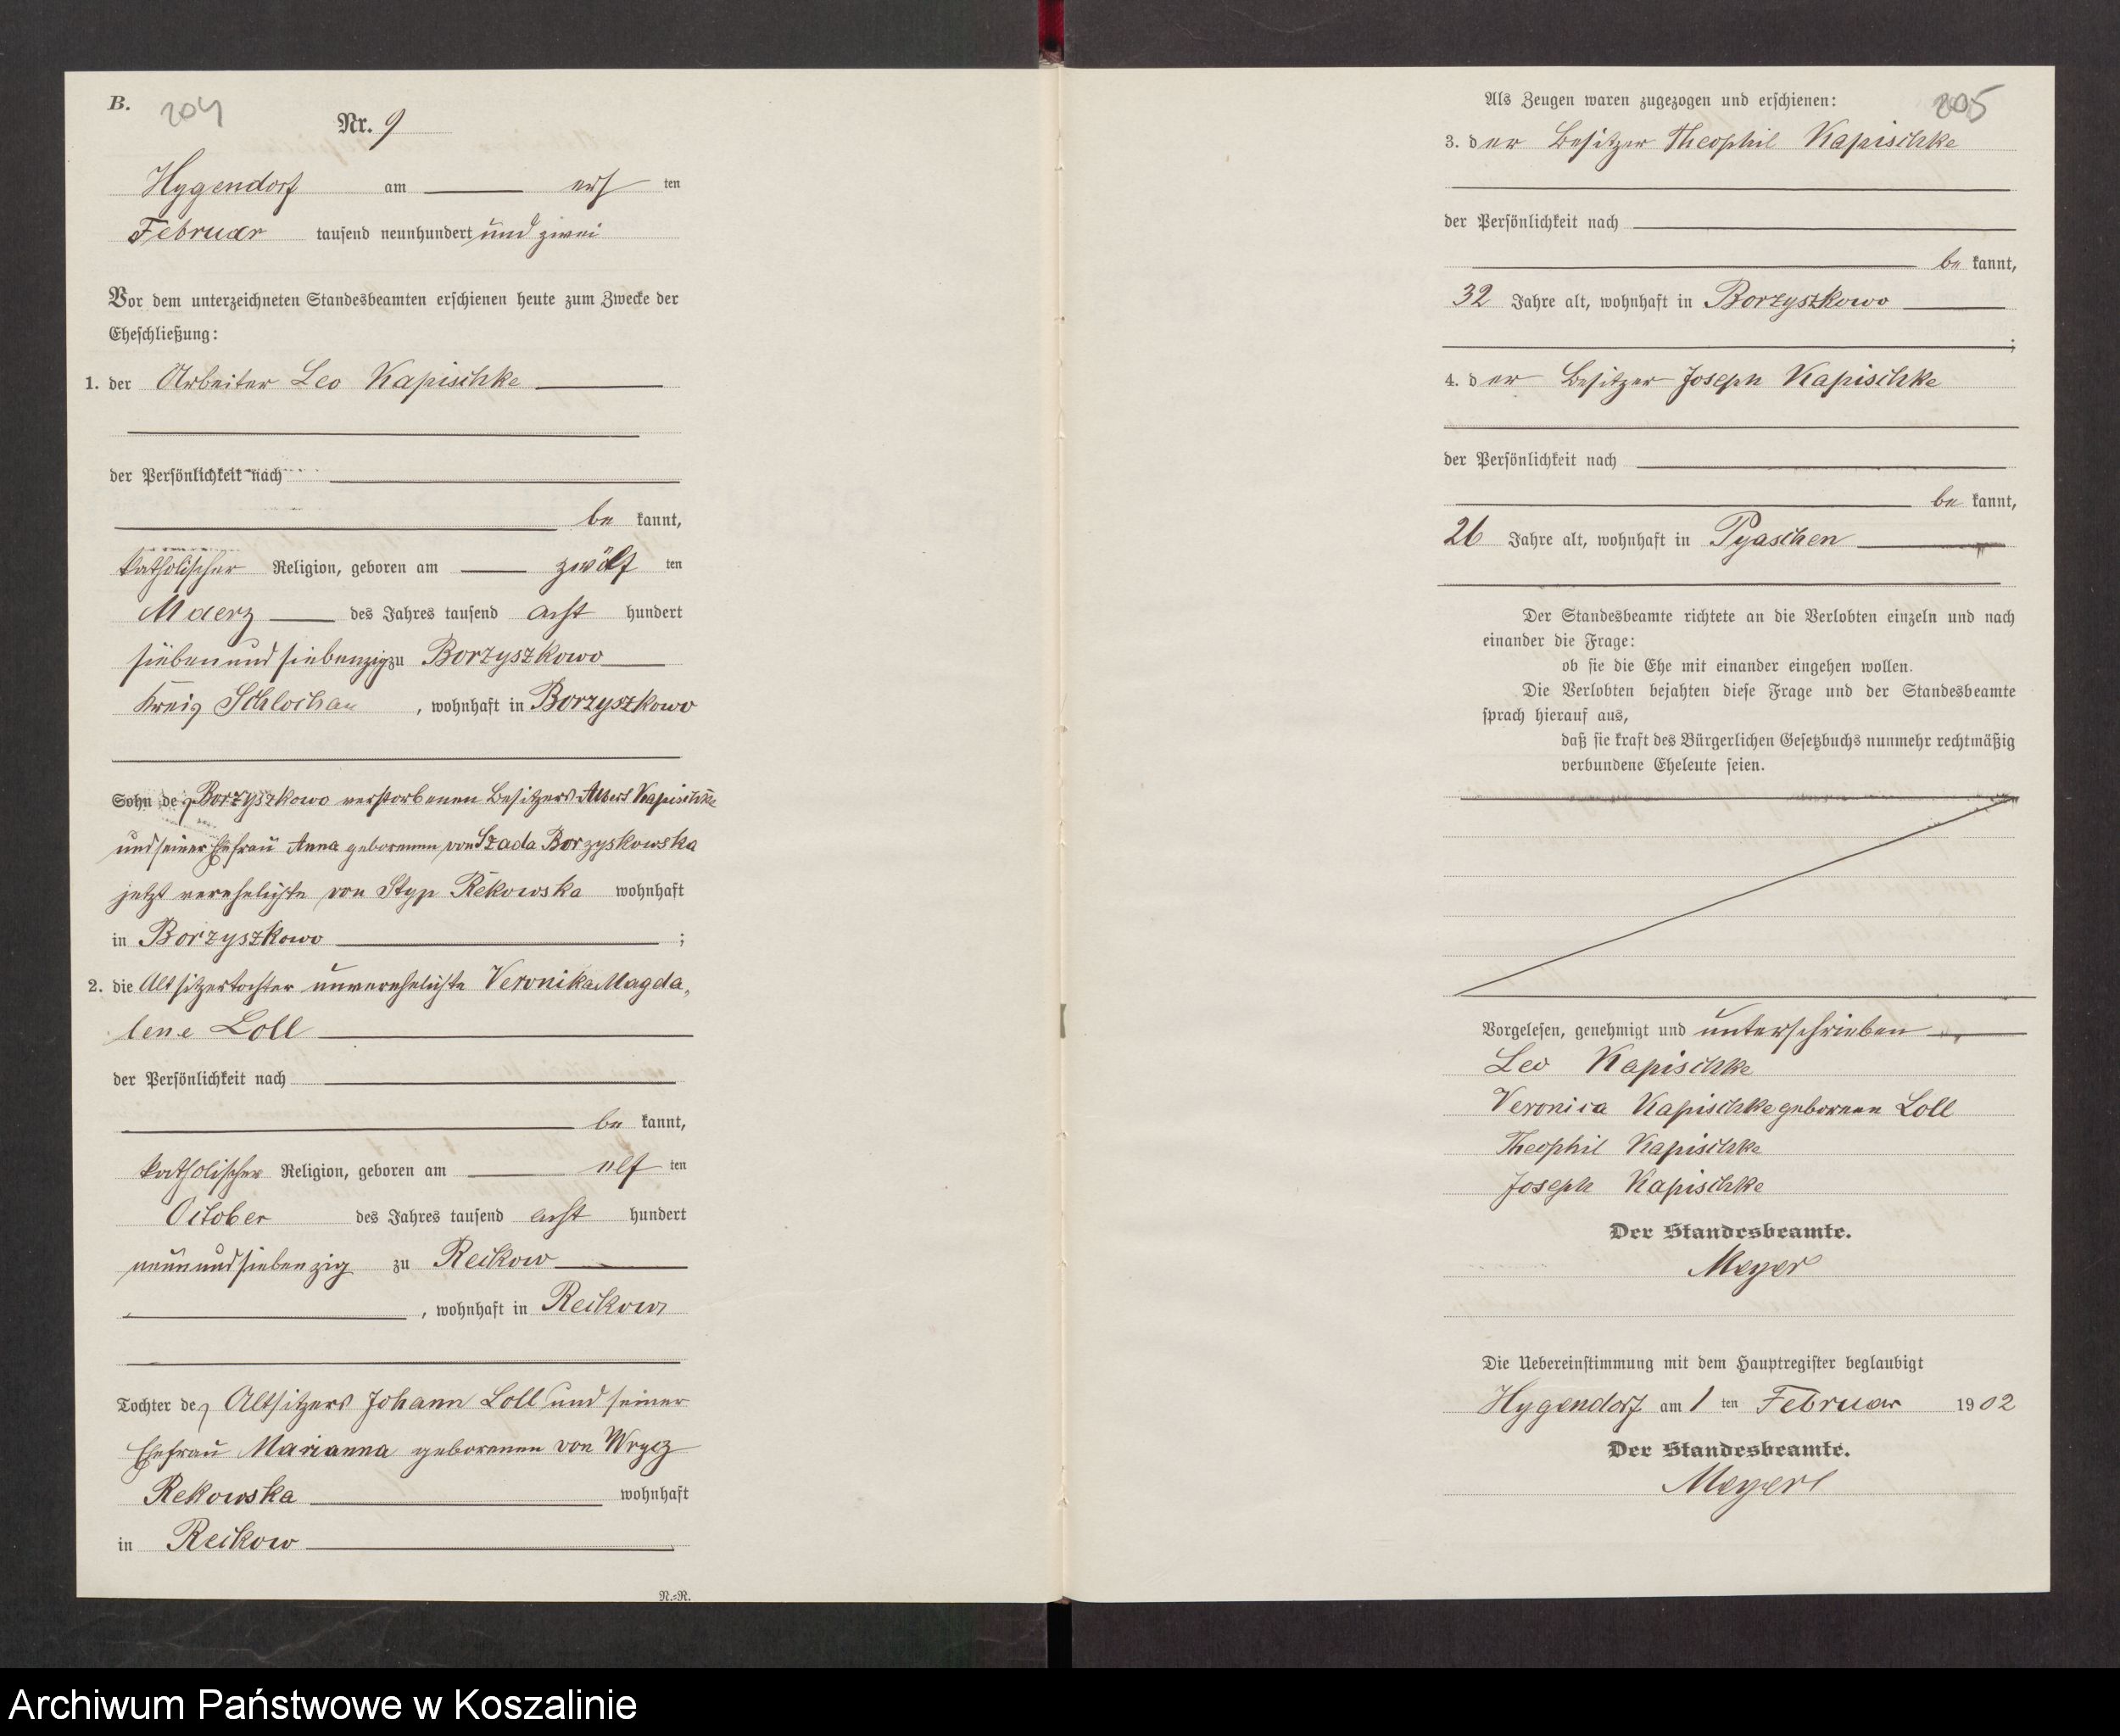 B.
204
Nr. 9
Hygendorf am erſ ten
Februar tauſend neunhundert und zwei
Vor dem unterzeichneten Standesbeamten erſchienen heute zum Zwecke der
Eheſchließung:
1. der Arbeiter Leo Kapischke
der Perſönlichkeit nach
be kannt,
katholiſcher Religion, geboren am zwölf ten
Maerz des Jahres tauſend acht hundert
ſieben und ſiebenzig zu Borzyszkowo
Kreis Schlochau , wohnhaft in Borzyszkowo
Sohn des Borzyszkowo verſtorbenen Beſitzers Albert Kapischke
und ſeiner Ehefrau Anna geborenen von Szada Borzyskowska
jetzt verehelichte von Styp Rekowska wohnhaft
in Borzyszkowo ;
2. die Altſitzertochter unverehelichte Veronika Magda-
lene Loll
der Perſönlichkeit nach
be kannt,
katholiſcher Religion, geboren am elf ten
October des Jahres tauſend acht hundert
neun und ſiebenzig zu Reckow
, wohnhaft in Reckow
Tochter des Altſitzers Johann Loll und ſeiner
Ehefrau Marianna geborenen von Wrycz
Rekowska wohnhaft
in Reckow
N.-R.
205
Als Zeugen waren zugezogen und erſchienen:
3. der Beſitzer Theophil Kapischke
der Perſönlichkeit nach
be kannt,
32 Jahre alt, wohnhaft in Borzyszkowo
;
4. der Beſitzer Joseph Kapischke
der Perſönlichkeit nach
be kannt,
26 Jahre alt, wohnhaft in Pyaschen
Der Standesbeamte richtete an die Verlobten einzeln und nach
einander die Frage:
ob ſie die Ehe mit einander eingehen wollen.
Die Verlobten bejahten dieſe Frage und der Standesbeamte
ſprach hierauf aus,
daß ſie kraft des Bürgerlichen Geſetzbuchs nunmehr rechtmäßig
verbundene Eheleute ſeien.
Vorgeleſen, genehmigt und unterſchrieben
Leo Kapischke
Veronica Kapischke geborene Loll
Theophil Kapischke
Joseph Kapischke
Der Standesbeamte.
Meyer
Die Uebereinſtimmung mit dem Hauptregiſter beglaubigt
Hygendorf am 1 ten Februar 1902
Der Standesbeamte.
Meyer
Archiwum Państwowe w Koszalinie